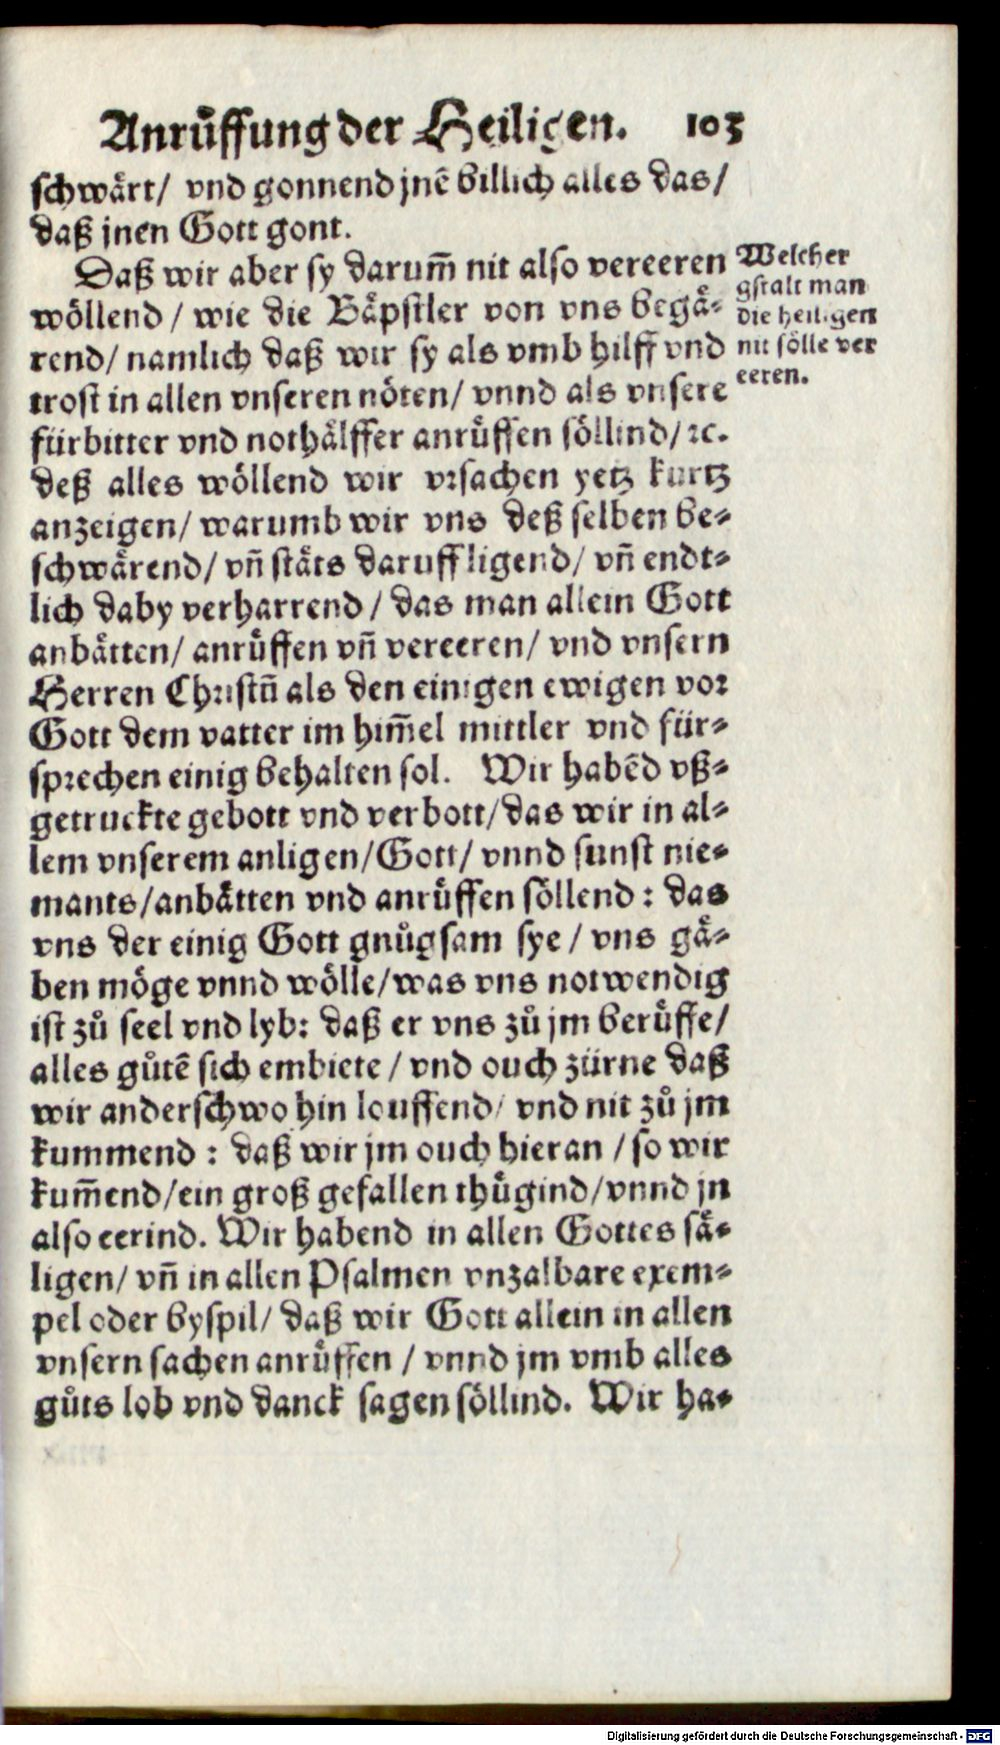 Anrůffung der Heiligen. 103
schwärt/ vnd gonnend jnē billich alles das/
daß jnen Gott gont.
Daß wir aber sy darum̄ nit also vereeren
wöllend / wie die Bäpstler von vns begä-
rend/ namlich daß wir sy als vmb hilff vnd
trost in allen vnseren nöten/ vnnd als vnsere
fürbitter vnd nothälffer anrůffen söllind/ ꝛc.
deß alles wöllend wir vrsachen yetz kurtz
anzeigen/ warumb wir vns deß selben be-
schwärend/ vn̄ stäts daruff ligend/ vn̄ endt-
lich daby verharrend / das man allein Gott
anbätten/ anrůffen vn̄ vereeren/ vnd vnsern
Herren Christū als den einigen ewigen vor
Gott dem vatter im him̄el mittler vnd für-
sprechen einig behalten sol. Wir habēd vß-
getruckte gebott vnd verbott/ das wir in al-
lem vnserem anligen/ Gott/ vnnd sunst nie-
mants/ anbätten vnd anrůffen söllend: das
vns der einig Gott gnůgsam sye / vns gä-
ben möge vnnd wölle/ was vns notwendig
ist zů seel vnd lyb: daß er vns zů jm berůffe/
alles gůtē sich embiete / vnd ouch zürne daß
wir anderschwo hin louffend/ vnd nit zů jm
kummend: daß wir jm ouch hieran / so wir
kum̄end/ ein groß gefallen thůgind/ vnnd jn
also eerind. Wir habend in allen Gottes sä-
ligen/ vn̄ in allen Psalmen vnzalbare exem-
pel oder byspil/ daß wir Gott allein in allen
vnsern sachen anrůffen / vnnd jm vmb alles
gůts lob vnd danck sagen söllind. Wir ha-
Welcher
gstalt man
die heiligen
nit sölle ver
eeren.
Digitalisierung gefördert durch die Deutsche Forschungsgemeinschaft - DFG